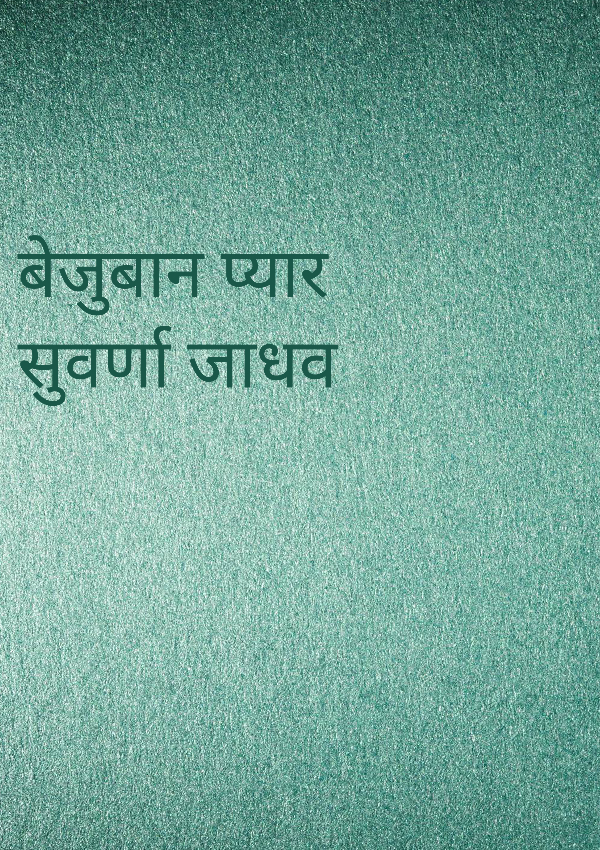 बेजुबान प्यार
सुवर्णा जाधव